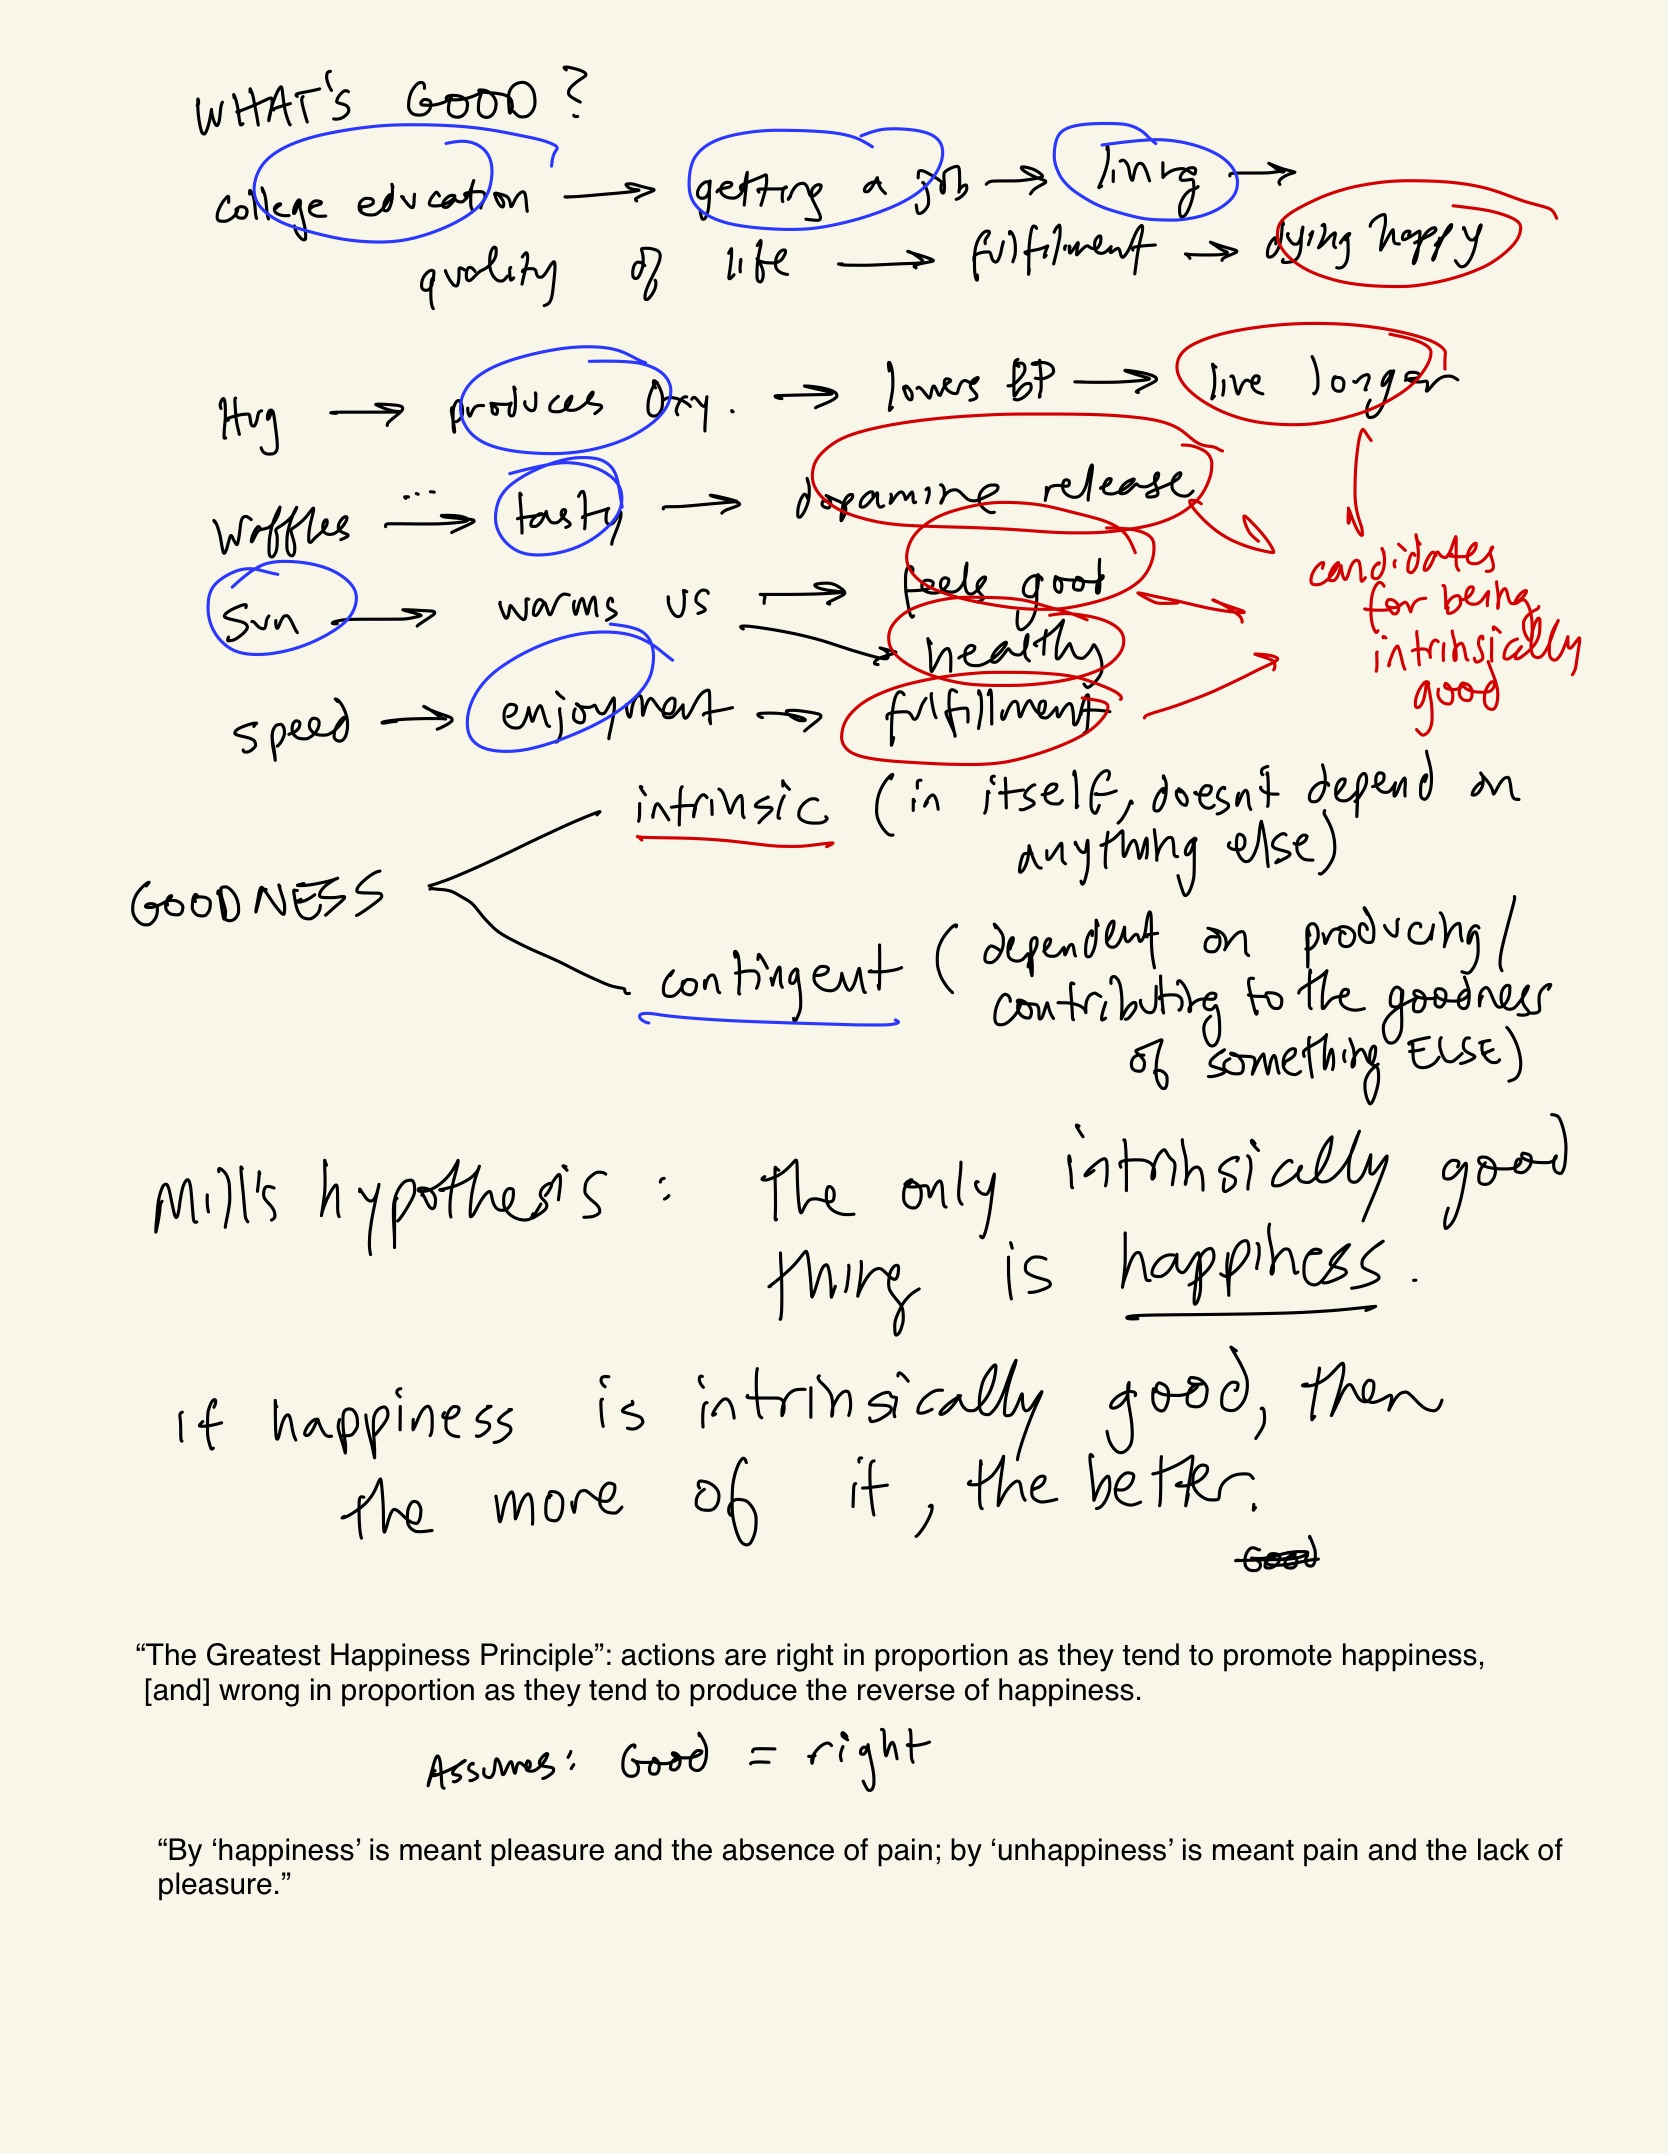 WHAT'S GOOD?
college education → getting a job → living →
quality of life → fulfilment → dying happy
Hug → produces Oxy. → lowers BP → live longer
Waffles ... → tasty → dopamine release
candidates
for being
intrinsically
good
Sun → warms us → feels good
→ healthy
speed → enjoyment → fulfillment
intrinsic (in itself, doesn't depend on
anything else)
GOODNESS
contingent (dependent on producing/
contributing to the goodness
of something ELSE)
Mill's hypothesis: the only intrinsically good
thing is happiness.
if happiness is intrinsically good, then
the more of it, the better.
Good
“The Greatest Happiness Principle”: actions are right in proportion as they tend to promote happiness,
[and] wrong in proportion as they tend to produce the reverse of happiness.
Assumes: Good = right
“By ‘happiness’ is meant pleasure and the absence of pain; by ‘unhappiness’ is meant pain and the lack of
pleasure.”